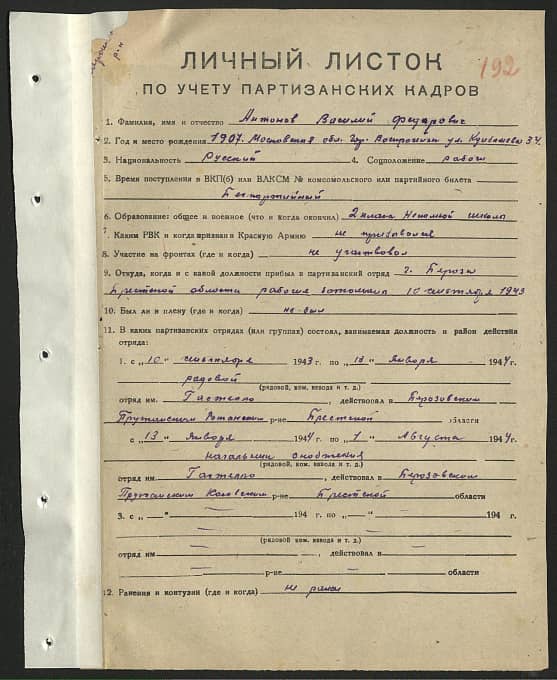 р-н
192
ЛИЧНЫЙ ЛИСТОК
ПО УЧЕТУ ПАРТИЗАНСКИХ КАДРОВ
1. Фамилия, имя и отчество Антонов Василий Федарович
2. Год и место рождения 1907. Московская обл. гор. ул. Куйбышева 34
3. Национальность Русский 4. Соцположение рабочи
5. Время поступления в ВКП(б) или ВЛКСМ № комсомольского или партийного билета
Безпартийный
6. Образование: общее и военное (что и когда окончил) 2 класса школы
7. Каким РВК и когда призван в Красную Армию не призывался
8. Участие на фронтах (где и когда) не участвовал
9. Откуда, когда и с какой должности прибыл в партизанский отряд г. Береза
Брестской области рабочие 10 сентября 1943
10. Был ли в плену (где и когда) не был
11. В каких партизанских отрядах (или группах) состоял, занимаемая должность и район действия
отряда:
1. с „10" сентября 1943 г. по „13" Января 1944 г.
рядовой
(рядовой, ком. взвода и т. д.)
отряд им. Гастелло, действовал в Березовском
Пружанским р-не Брестской области
с „13" Января 1944 г. по „1" Августа 1944 г.
начальник снабжения
(рядовой, ком. взвода и т. д.)
отряд им. Гастелло, действовал в Березовском
Пружанским Косовским р-не Брестской области
3. с „—" — 194 г. по „—" — 194 г.
—
(рядовой, ком. взвода и т. д.)
отряд им —, действовал в —
— р-не — области
12. Ранения и контузии (где и когда) не ранен